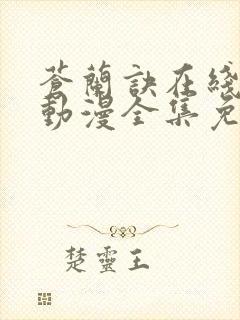 蒼蘭訣在綫
動漫全集免
楚靈王